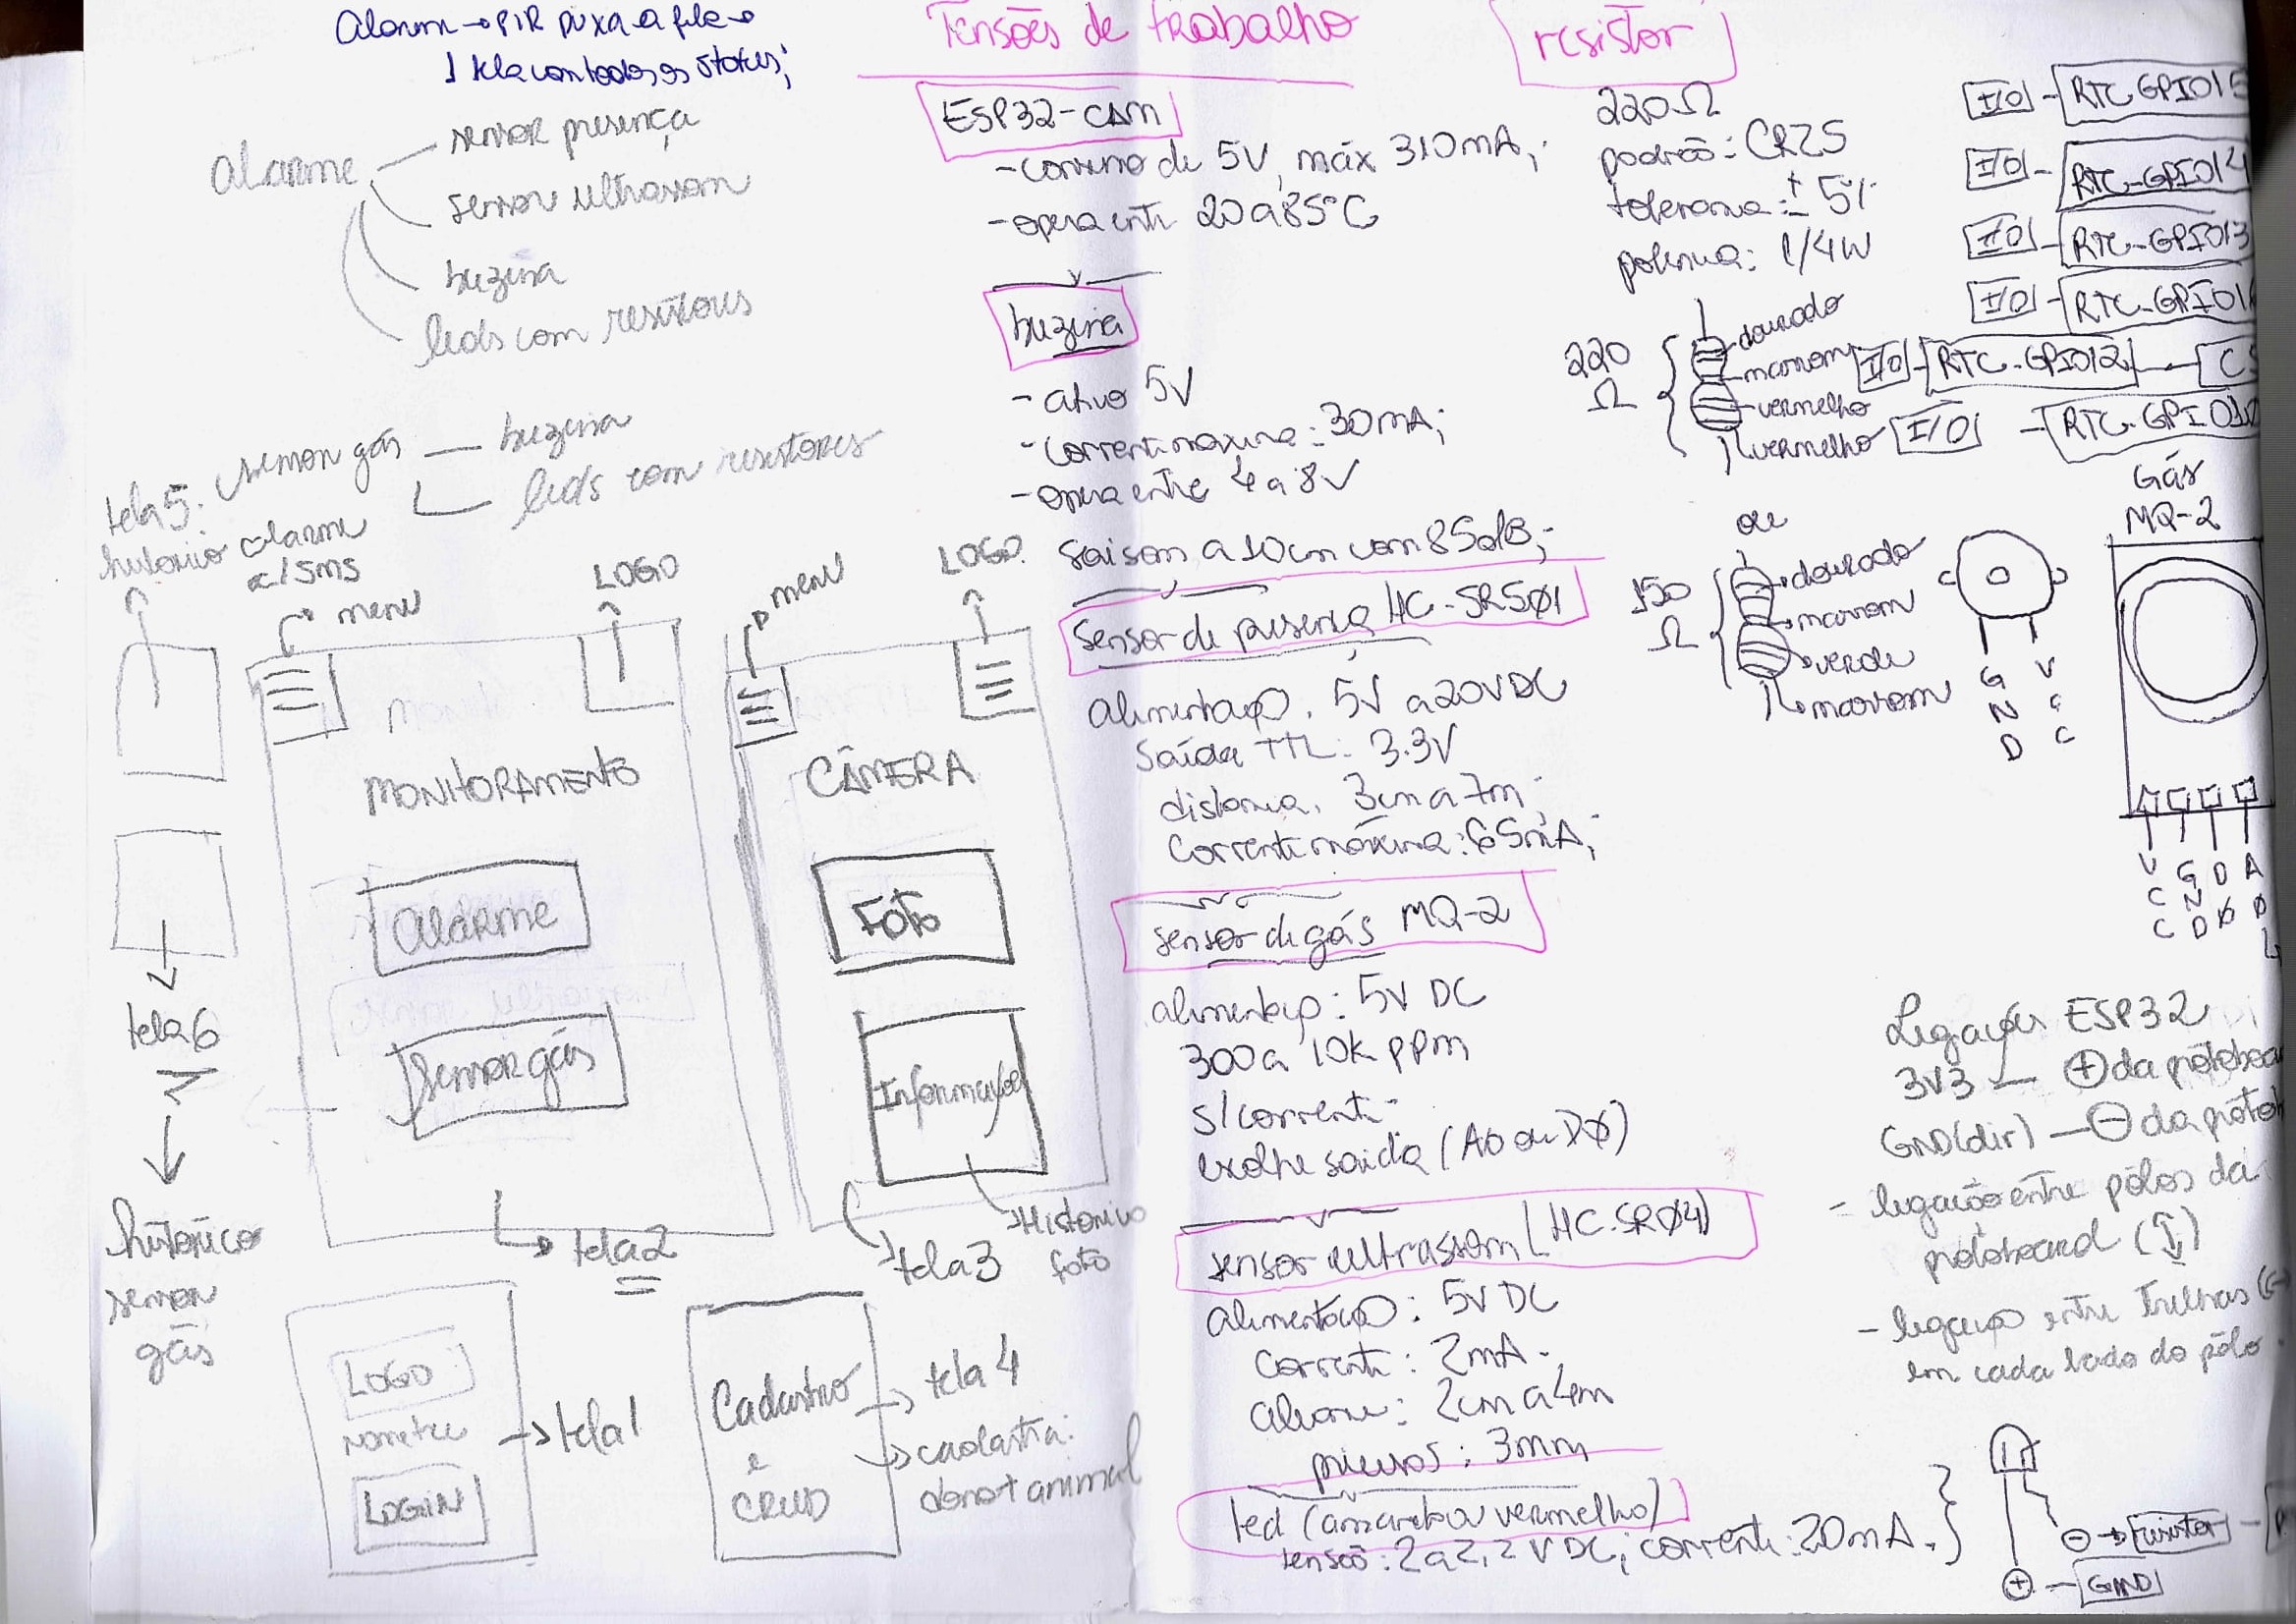 Alarm → PIR puxa a fila →
1 tela com todos os status;
alarme
sensor presença
sensor ultrassom
buzina
leds com resistores
sensor gás
buzina
leds com resistores
tela 5:
histórico alarme
c/ SMS
menu
LOGO
menu
LOGO
MONITORAMENTO
alarme
sensor gás
tela 2
CÂMERA
FOTO
Informações
tela 3
Histórico
foto
tela 6
histórico
sensor
gás
LOGO
LOGIN
tela 1
Cadastro
e
CRUD
tela 4
cadastra:
dono + animal
Tensões de trabalho
ESP32-CAM
- consumo de 5V, máx 310mA;
- opera entre 20 a 85°C
buzina
- ativo 5V
- corrente máxima: 30mA;
- opera entre 4 a 8V
sai som a 10cm com 85dB;
sensor de presença HC-SR5Ø1
alimentação: 5V a 20VDC
Saída TTL: 3.3V
distância: 3cm a 7m;
corrente máxima: 65mA;
sensor de gás MQ-2
alimentação: 5V DC
300 a 10k ppm
S/ corrente
escolhe saída (A0 ou DØ)
sensor ultrassom (HC-SRØ4)
alimentação: 5V DC
corrente: 2mA.
alcance: 2cm a 4m
precisão: 3mm
led (amarelo ou vermelho)
tensão: 2 a 2,2 VDC; corrente: 20mA.
resistor
220Ω
padrão: CR25
tolerância: ± 5%
potência: 1/4W
220
Ω
dourado
marrom
vermelho
vermelho
ou
150
Ω
dourado
marrom
verde
marrom
I/O - RTC GPIO15
I/O - RTC-GPIO14
I/O - RTC-GPIO13
I/O - RTC-GPIO1
I/O - RTC-GPIO12
I/O - RTC-GPIO
GND
VCC
Gás
MQ-2
VCC
GND
DØ
AØ
Ligações ESP32
3V3 — + da protoboa
GND(dir) — - da protob
- ligação entre pólos da
protoboard (↕)
- ligação entre trilhas
em cada lado do pólo
- → resistor -
+ — GND